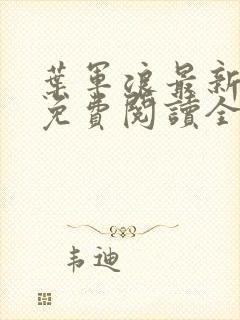 葉軍浪最新
免費閱讀全
韦迪